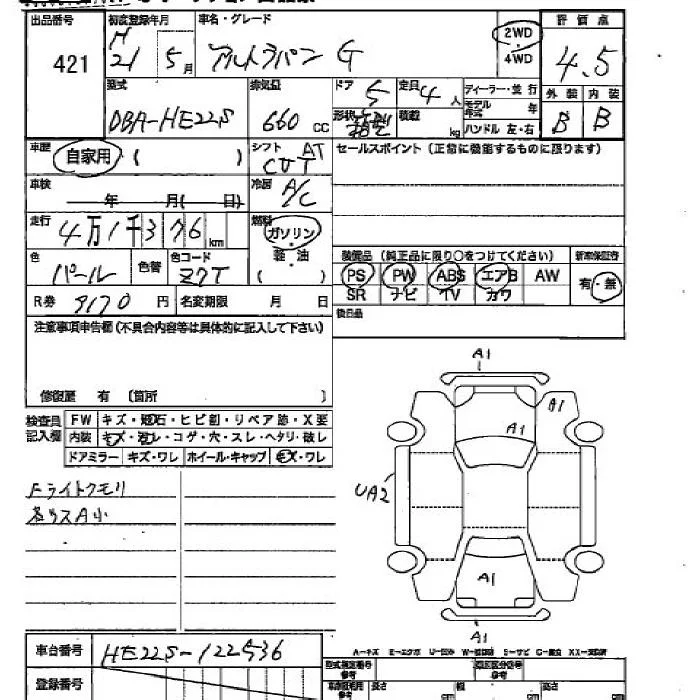 出品番号 初度登録年月 車名・グレード 評価点
421 H 21 5月 アルトラパン G 2WD・4WD 4.5
型式 排気量 ドア 定員 ディーラー・並行 外装 内装
DBA-HE22S 660 CC 5 4人 モデル年式 年 B B
形状 積載 kg ハンドル 左・右
車歴 自家用・( ) シフト AT CVT セールスポイント(正常に機能するものに限ります)
車検 年 月( 日) 冷房 A/C
走行 4万1千376km 燃料 ガソリン・軽・油 ( )
色 パール 色替 色コード Z7T
装備品(純正品に限り○をつけてください) 新車保証書
PS PW ABS エアB AW 有・無
SR ナビ TV カワ
R券 9170円 名変期限 月 日 後日品
注意事項申告欄(不具合内容等は具体的に記入して下さい)
修復歴 有 〔箇所 〕
検査員記入欄 FW キズ・飛石・ヒビ割・リペア跡・X要
内装 キズ・汚レ・コゲ・穴・スレ・ヘタリ・破レ
ドアミラー キズ・ワレ ホイール・キャップ キズ・ワレ
Fライトクモリ
A1
A1
A1
UA2
A1
A1
車台番号 HE22S-122536
登録番号
A-キズ E-エクボ U-凹み
型式指定番号 類別区分番号
長さ 幅 高さ